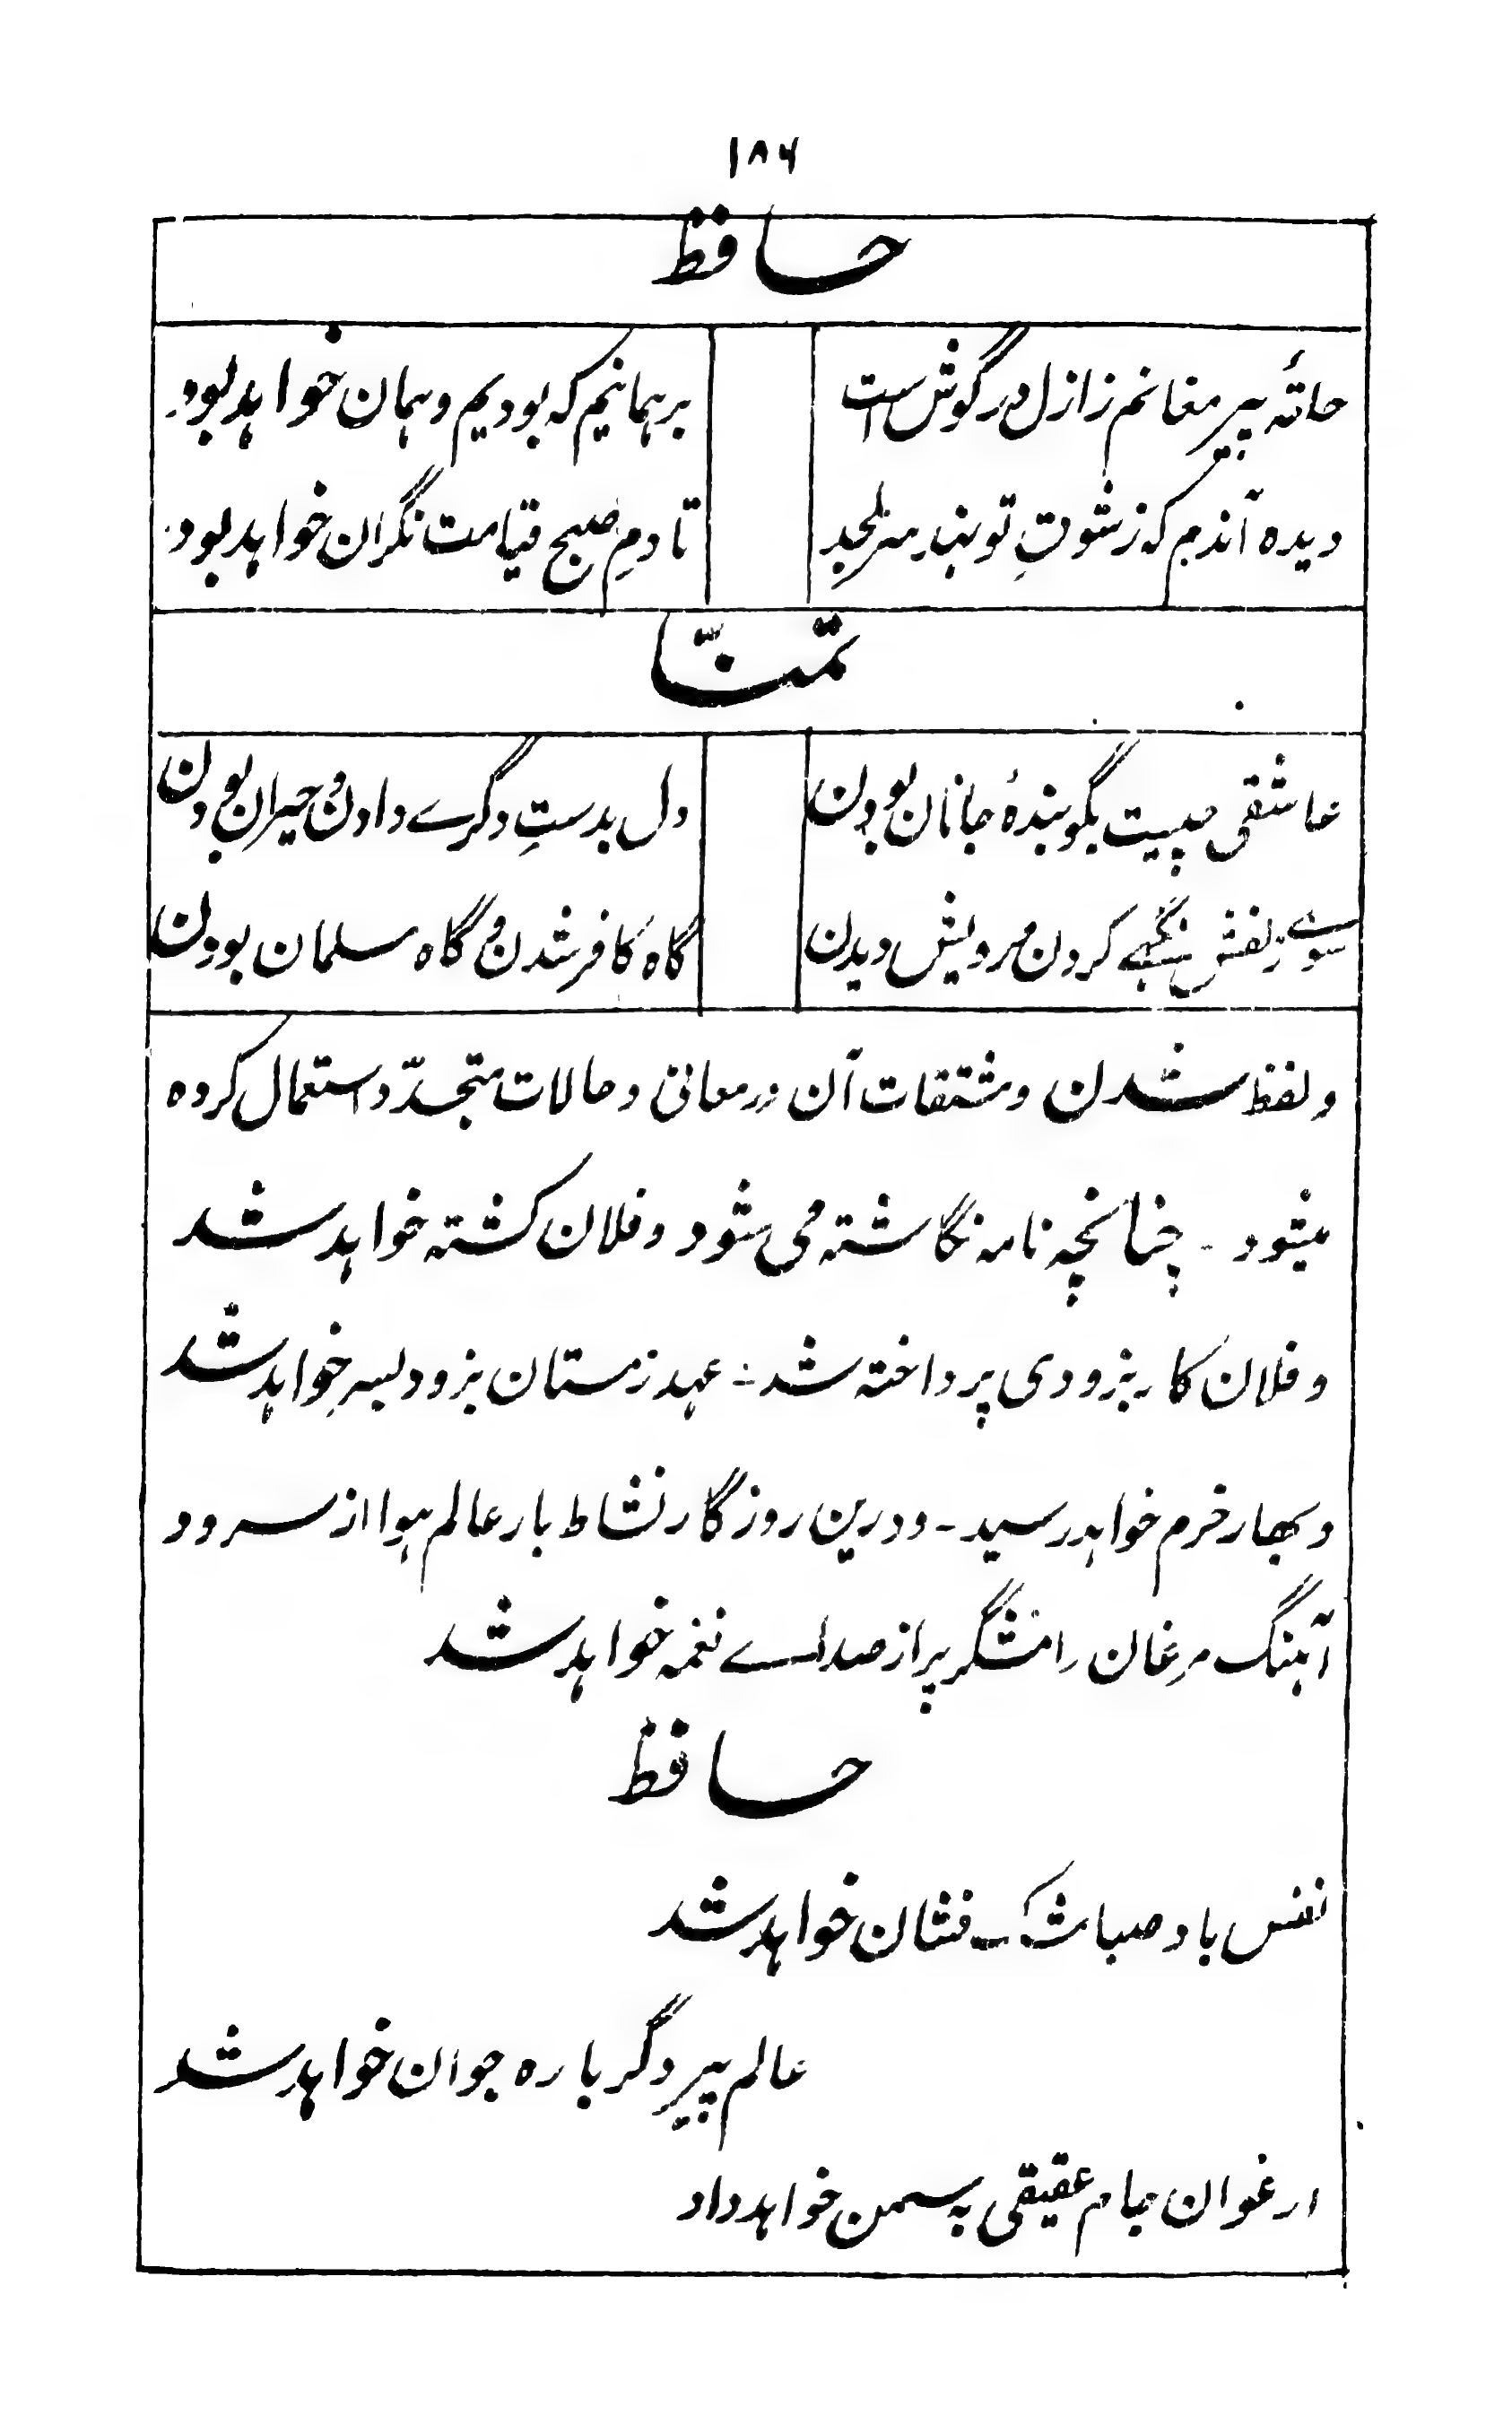 ۱۸۶
حافظ
حلقهٔ پیر مغانم ز ازل در گوش است
بر همانیم که بودیم و همان خواهد بود
دیده آندم که ز شوقِ تو نهد سر بلحد
تا دمِ صبح قیامت نگران خواهد بود
تمنّا
عاشقی چیست بگو بندهٔ جانان بودن
دل بدستِ دگرے دادن و حیران بودن
سوے زلفش نگہے کردن و رویش دیدن
گاه کافر شدن و گاه مسلمان بودن
و لفظ شدن و مشتقات آن در معانی و حالات متجدّد استعمال کرده
میشود - چنانچه نامه نگاشته می شود و فلان کشته خواهد شد
و فلان کار بزودی پرداخته شد - عهد زمستان بزود بسر خواهد شد
و بهار خرم خواهد رسید - و درین روزگار نشاط بار عالم هوا از سرود
آهنگ مرغان رامشگر پر از صداے نغمه خواهد شد
حافظ
نفس باد صبا مشک فشان خواهد شد
عالم پیر دگر باره جوان خواهد شد
ارغوان جام عقیقی به سمن خواهد داد